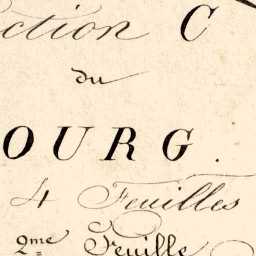 ction C
du
OURG.
4 Feuilles
2me Feuille